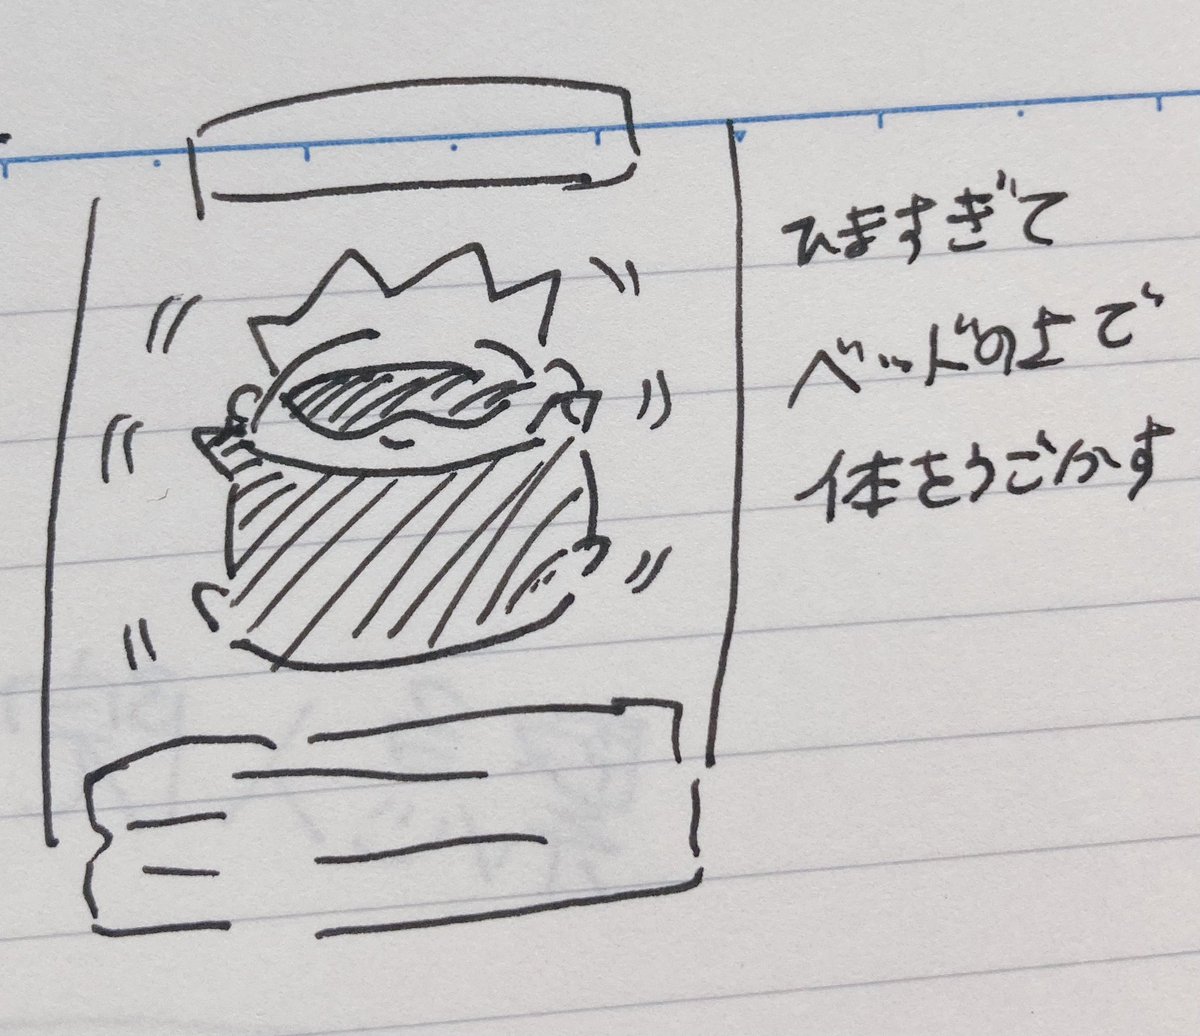 ひますぎて
ベッドの上で
体をうごかす